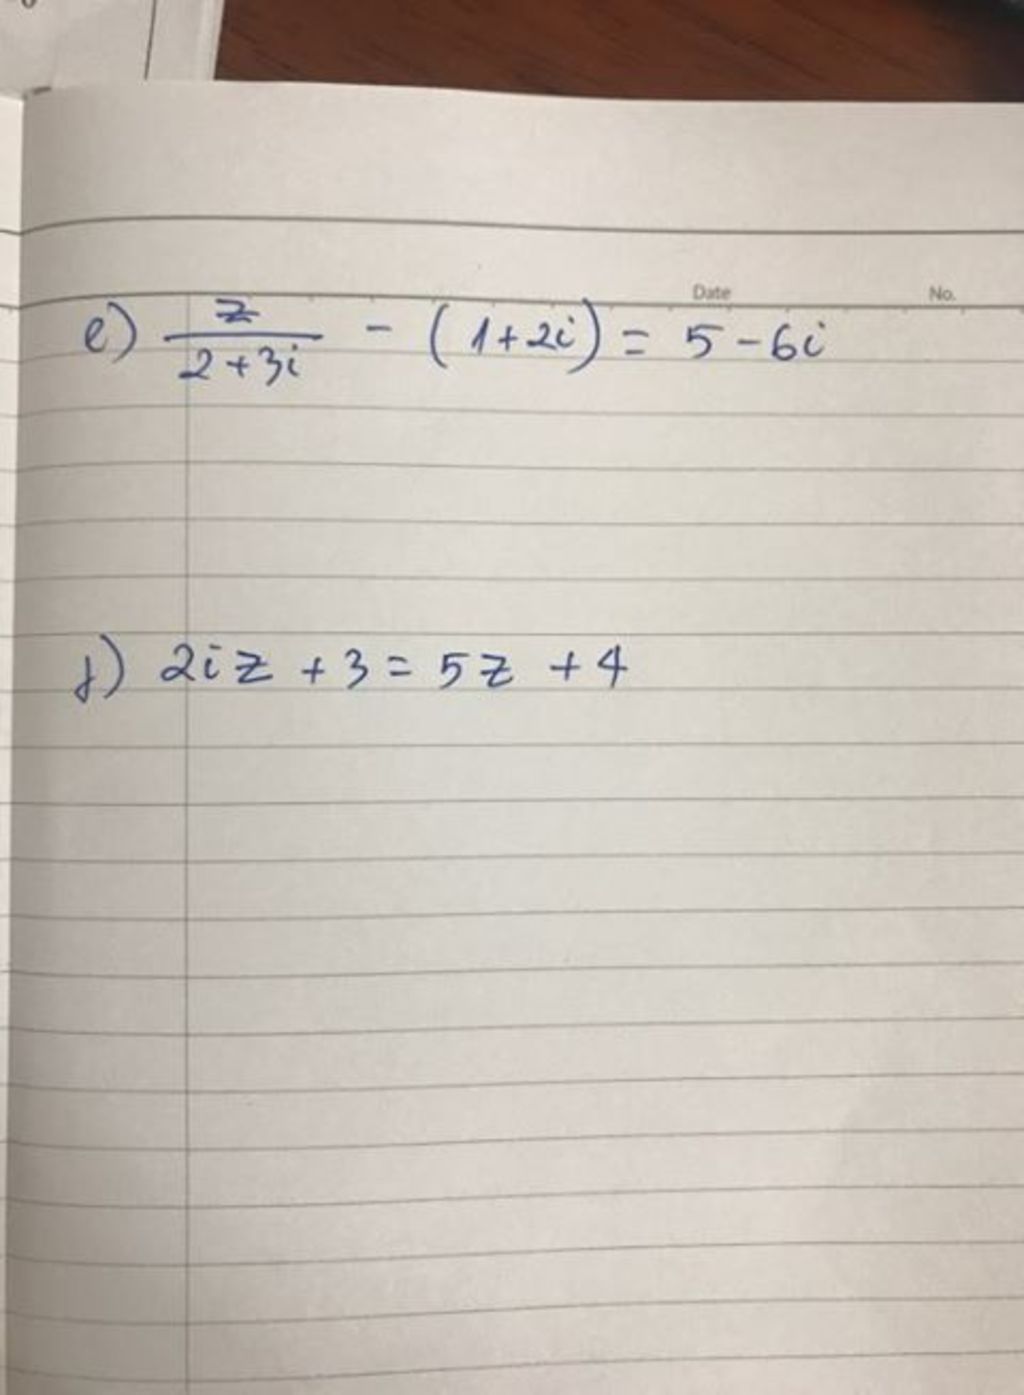 Date No.
e) z/(2+3i) - (1+2i) = 5-6i
f) 2iz + 3 = 5z + 4